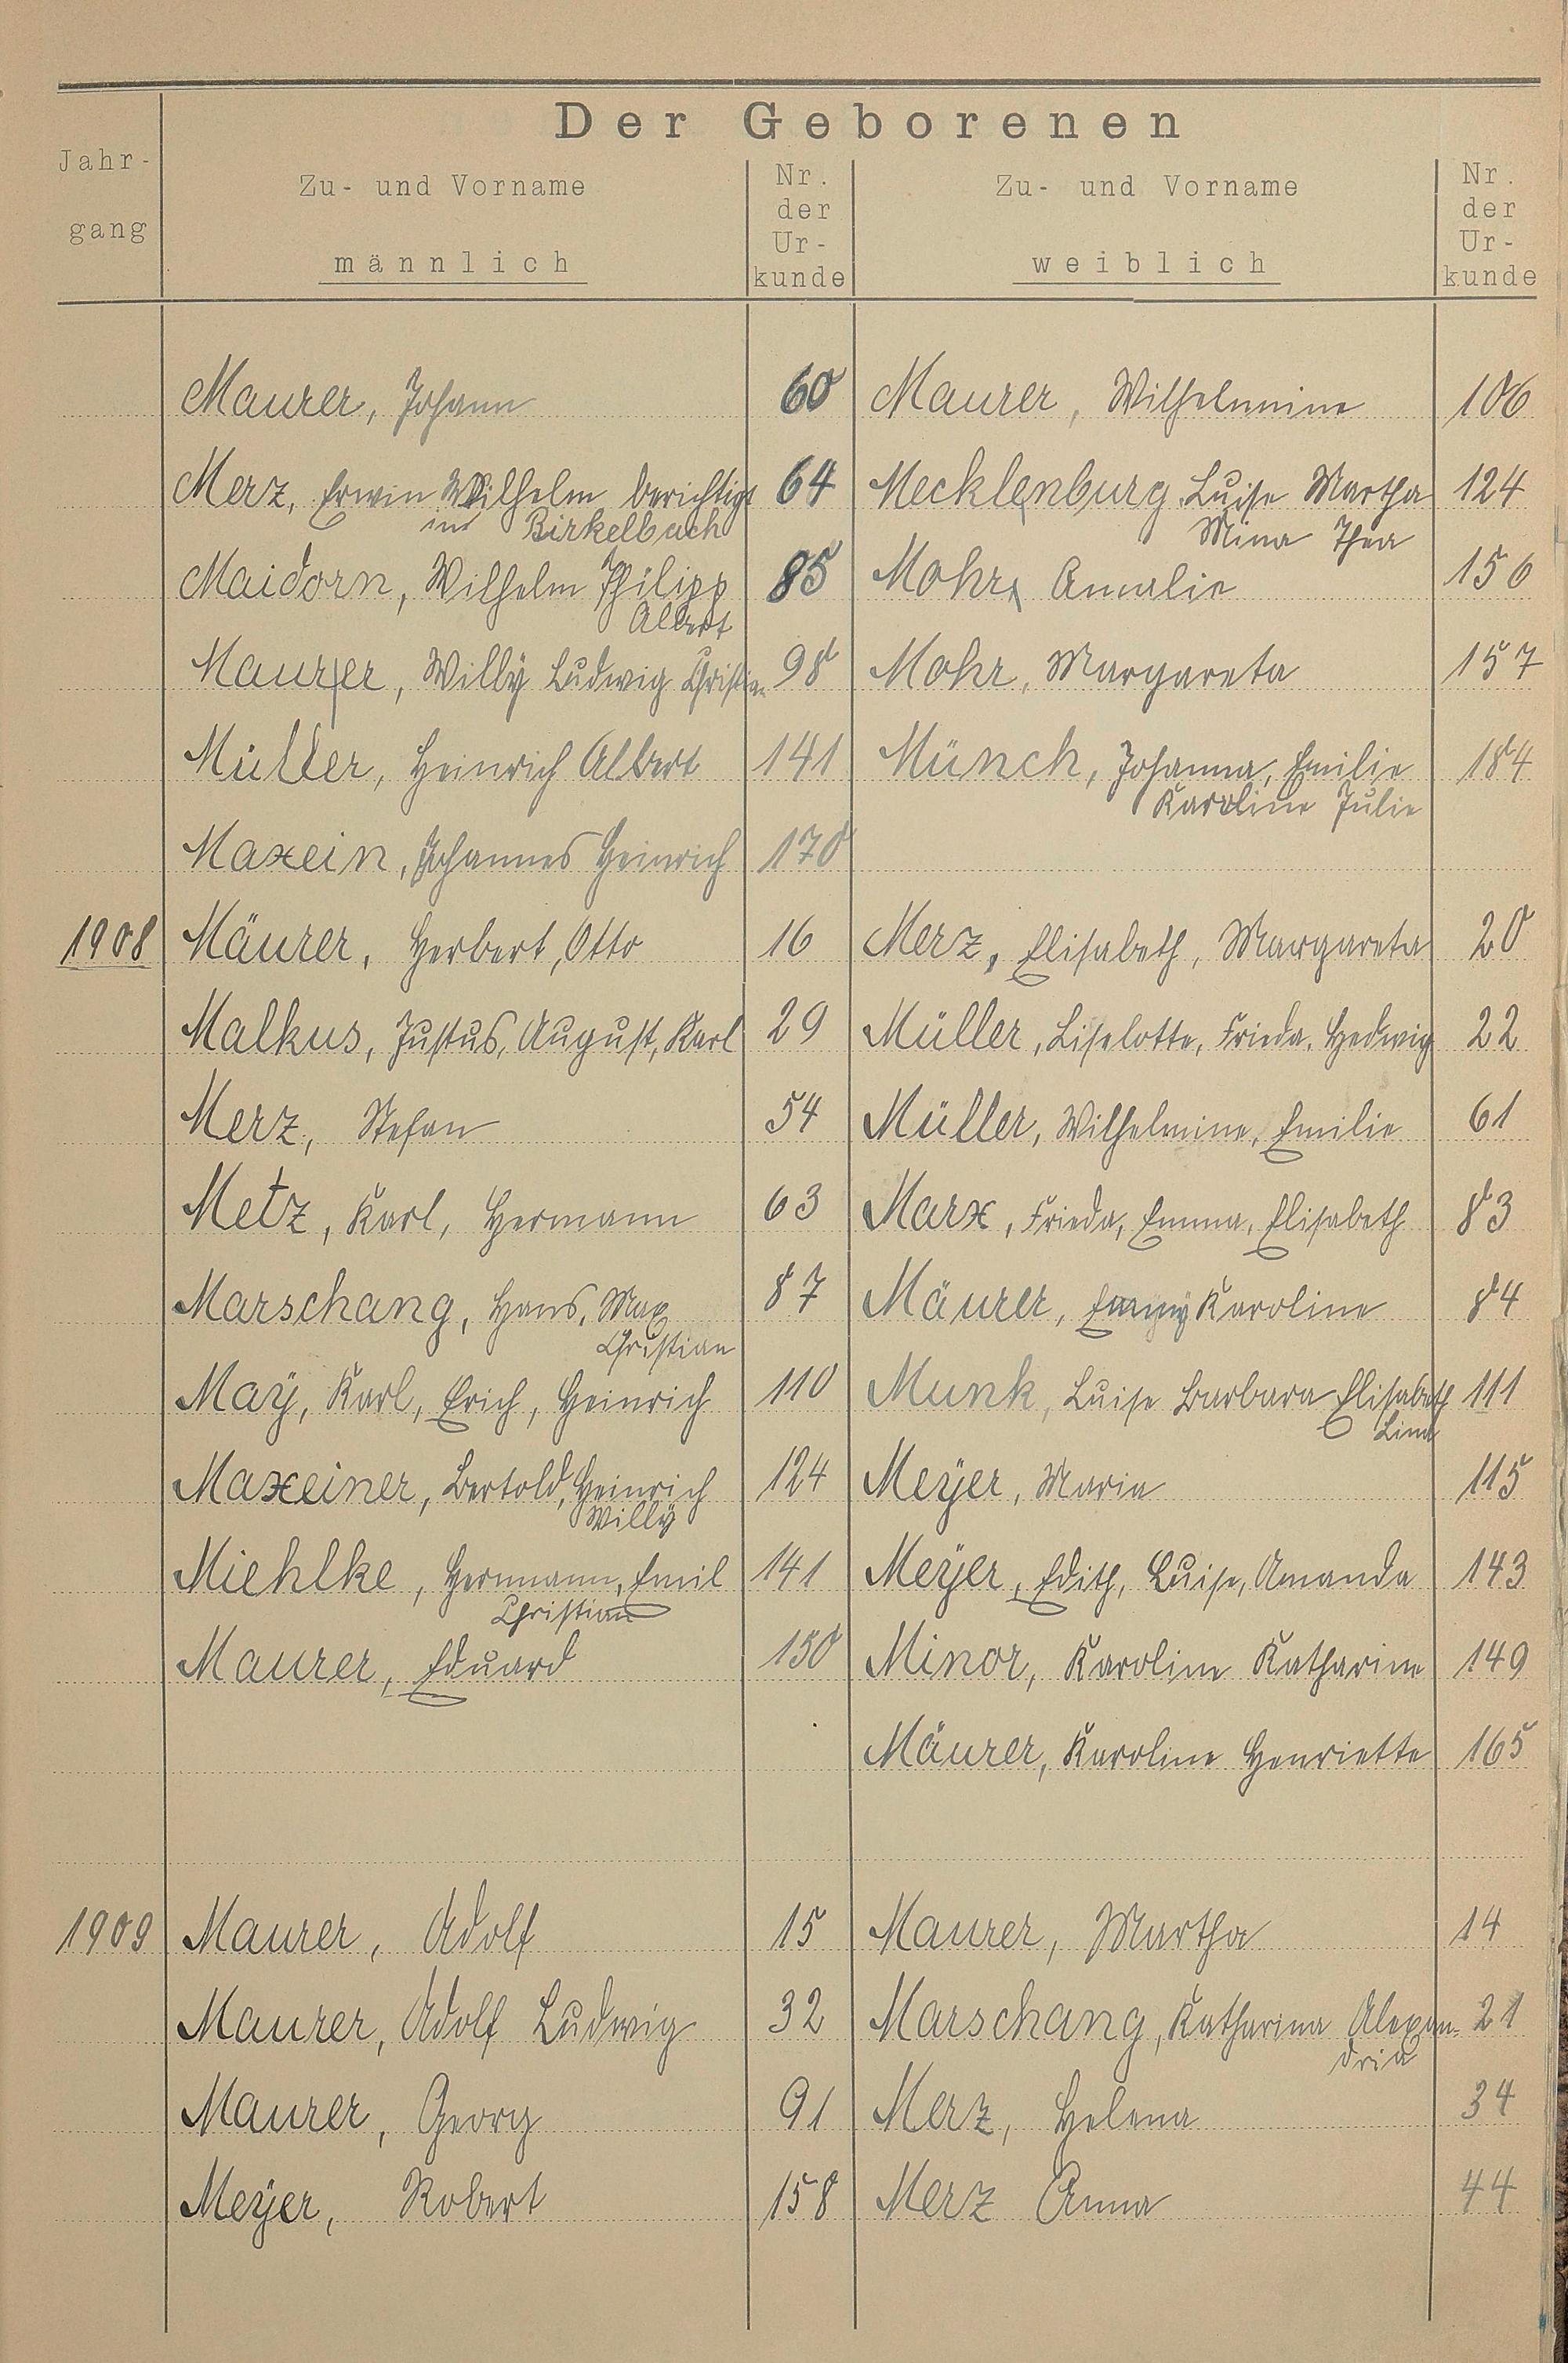 Der Geborenen
Jahr-
gang
Zu- und Vorname
männlich
Nr.
der
Ur-
kunde
Zu- und Vorname
weiblich
Nr.
der
Ur-
kunde
Maurer, Johann 60 Maurer, Wilhelmine 106
Merz, Erwin Wilhelm berichtigt 64 Mecklenburg, Luise Martha 124
in Birkelbach Mina Thea
Maidorn, Wilhelm Philipp 85 Mohr, Amalie 156
Albert
Maurer, Willy Ludwig Christian 98 Mohr, Margareta 157
Müller, Heinrich Albert 141 Münch, Johanna, Emilie 184
Karoline Julie
Maxein, Johannes Heinrich 170
1908 Mäurer, Herbert, Otto 16 Merz, Elisabeth, Margareta 20
Malkus, Justus, August, Karl 29 Müller, Liselotte, Frieda, Hedwig 22
Merz, Stefan 54 Müller, Wilhelmine, Emilie 61
Metz, Karl, Hermann 63 Marx, Frieda, Emma, Elisabeth 83
Marschang, Hans, Max 87 Mäurer, Emmy Karoline 84
Christian
May, Karl, Erich, Heinrich 110 Munk, Luise Barbara Elisabeth 111
Lina
Maxeiner, Bertold, Heinrich 124 Meyer, Maria 115
Willy
Miehlke, Hermann, Emil 141 Meyer, Edith, Luise, Amanda 143
Christian
Maurer, Eduard 150 Minor, Karoline Katharine 149
Mäurer, Karoline Henriette 165
1909 Maurer, Adolf 15 Maurer, Martha 14
Maurer, Adolf Ludwig 32 Marschang, Katharina Alexan- 21
dria
Maurer, Georg 91 Merz, Helena 34
Meyer, Robert 158 Merz Anna 44